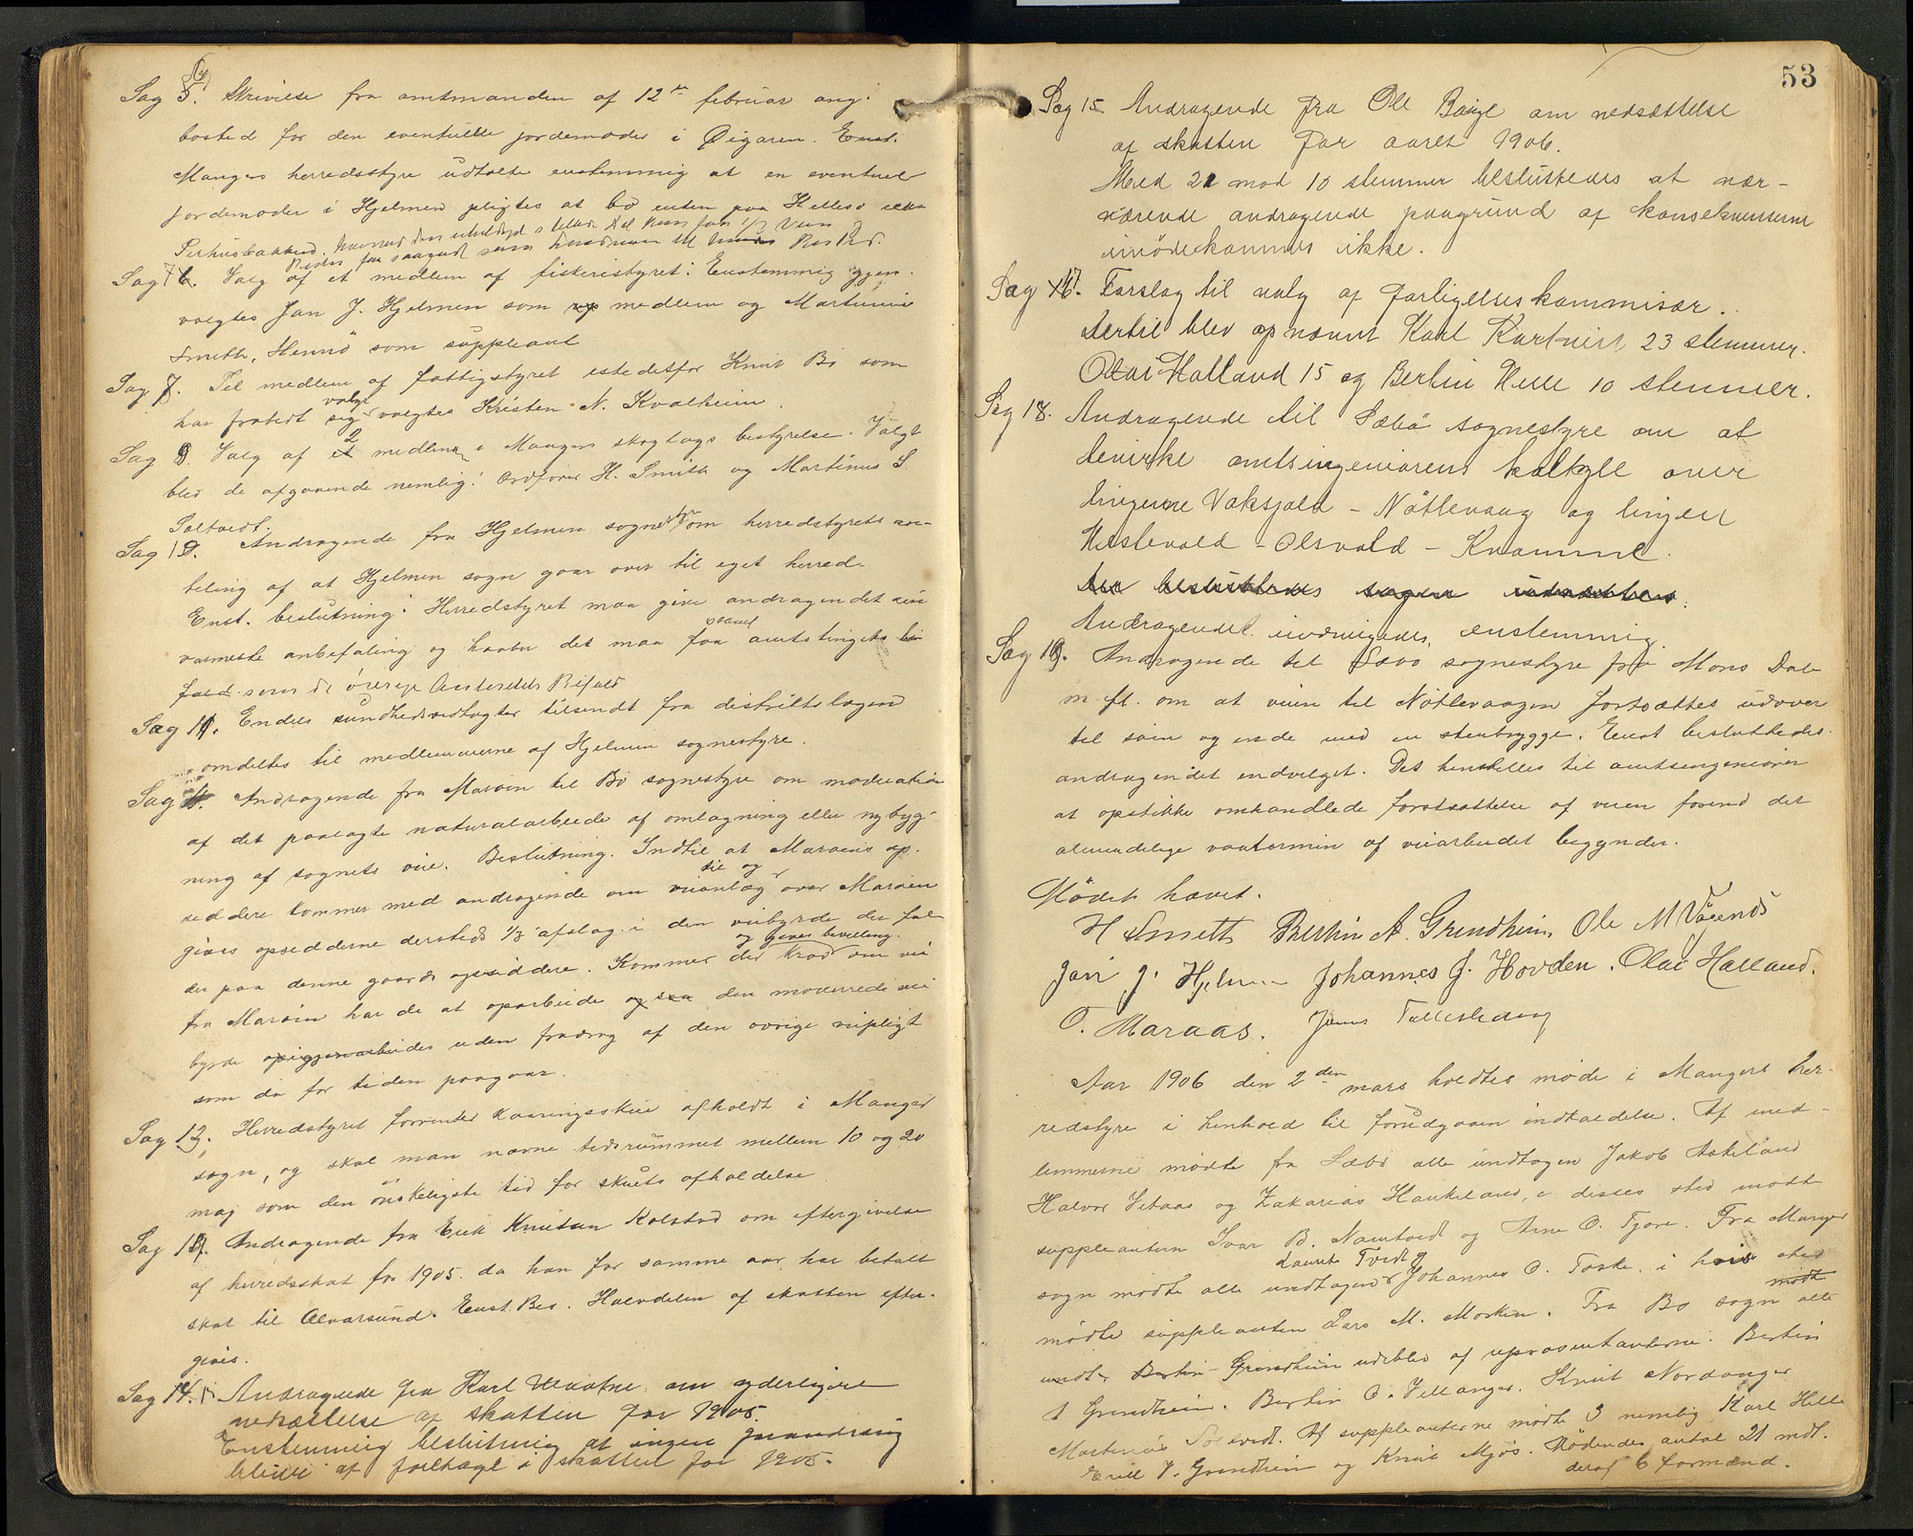 Sag 5. Skrivelse fra amtmanden af 12te februar ang.
bosted for den eventuelle jordemoder i Øigaren. Enst.
Mangers herredsstyre udtalte enstemmig at en eventuel
jordemoder i Hjelmen pligtes at bo enten paa Hellesø eller
Sag 7. Valg af et medlem af fiskeristyret: Enstemmig gjen-
valgtes Jan J. Hjelmen som medlem og Martinus
Smith, Hennø som suppleant
Sag 7. Til medlem af fattigstyret istedetfor Knut Bø som
har frabedt sig valg valgtes Kristen N. Kvalheim.
Sag 9. Valg af 2 medlem i Mangers skoglags bestyrelse. Valgt
blev de afgaaende nemlig: Ordfører H. Smith og Martinus S.
Soltvedt.
Sag 10. Andragende fra Hjelmen sognestyre om herredstyrets
beling af at Hjelmen sogn gaar over til eget herred.
Enst. beslutning: Herredstyret maa give andragendet sin
varmeste anbefaling og haaber det maa faa saavel amtstingets bi-
fald som de øvrige Autoriteters Bifald
Sag 11. Endel sundhedsvedtægter tilsendt fra distriktslægen
omdeltes til medlemmerne af Hjelmen sognestyre.
Sag Andragende fra Marøen til Bø sognestyre om moderation
af det paalagte naturalarbeide af omlægning eller nybyg-
ning af sognets veie. Beslutning. Indtil at Marøens op-
siddere kommer med andragende om veianlæg til og over Marøen
gives opsidderne dersteds 1/3 afslag i den veibyrde der fal-
der paa denne gaards opsiddere. Kommer der krav om vei og gives bevilling.
fra Marøen har de at oparbeide den modererede vei
byrde uden fradrag af den øvrige veipligt
som da for tiden paagaar.
Sag 12. Herredstyret forventer kaaringsskue afholdt i Manger
sogn, og skal man nævne tidsrummet mellem 10 og 20
maj som den ønskeligste tid for skuets afholdelse
Sag 13. Andragende fra Erik Knutsen Kolstad om eftergivelse
af herredsskat for 1905. da han for samme aar har betalt
skat til Alversund. Enst. Bes. Halvdelen af skatten efter-
gives.
Sag 14. Andragende fra Karl om yderligere
nedsættelse af skatten for 1905.
Enstemmig beslutning at ingen forandring
bliver at foretage i skatten for 1905.
53
Sag 15. Andragende fra Ole Bauge om nedsættelse
af skatten for aaret 1906.
Med 21 mod 10 stemmer besluttedes at nær-
værende andragende paagrund af konsekvenserne
imødekommes ikke.
Sag 17. Forslag til valg af forligelseskommisær.
Dertil blev opnævnt Karl Kartveit 23 stemmer.
Olai Halland 15 og Berlin Helle 10 stemmer.
Sag 18. Andragende til Sæbø sognestyre om at
bevirke amtsingeniørens kalkyle over
linjerne Vaksjøld - Nøtlevaag og linjen
Hestevold - Olsvold - Kvamme.
Det besluttedes sagen udsættes.
Andragendet indvilgedes enstemmig.
Sag 19. Andragende til Sæbø sognestyre fra Mons Dale
m. fl. om at veien til Nøtlevaagen fortsættes udover
til søen og ende med en stenbrygge. Enst besluttedes
andragendet indvilget. Det henstilles til amtsingeniøren
at opstikke omhandlede forstsættelse af veien forend det
almindelige vaartermin af veiarbeidet begynder.
Mödet hævet.
H Smith Berlin A. Grindheim, Ole M Vågenes
Jan J. Hjelmen Johannes J. Hovden. Olai Halland.
O. Maraas. Jens
Aar 1906 den 2den mars holdtes møde i Mangers her-
redstyre i henhold til forudgaaen indkaldelse. Af med-
lemmerne mødte fra Sæbø alle undtagen Jakob Askeland
Halvor Setaas og Zakarias Haukeland, i disses sted mødte
suppleanterne Ivar B. Namtvedt og Arne O. Tjore. Fra Manger
sogn mødte alle undtagen Laurits Tvedt og Johannes O. Toska. i hvis sted
mødte suppleanten Lars M. Morken. Fra Bø sogn mødte alle
undt. Berlin Grindheim udeblev af repræsentanterne: Berlin
A Grindheim. Berlin O. Sellanger. Knut Nordanger
Martinus Soltvedt. Af suppleanterne mødte 3 nemlig Karl Helle
Emil J. Grindheim og Knut Mjøs. Mødendes antal 21 mdt.
deraf 6 formænd.